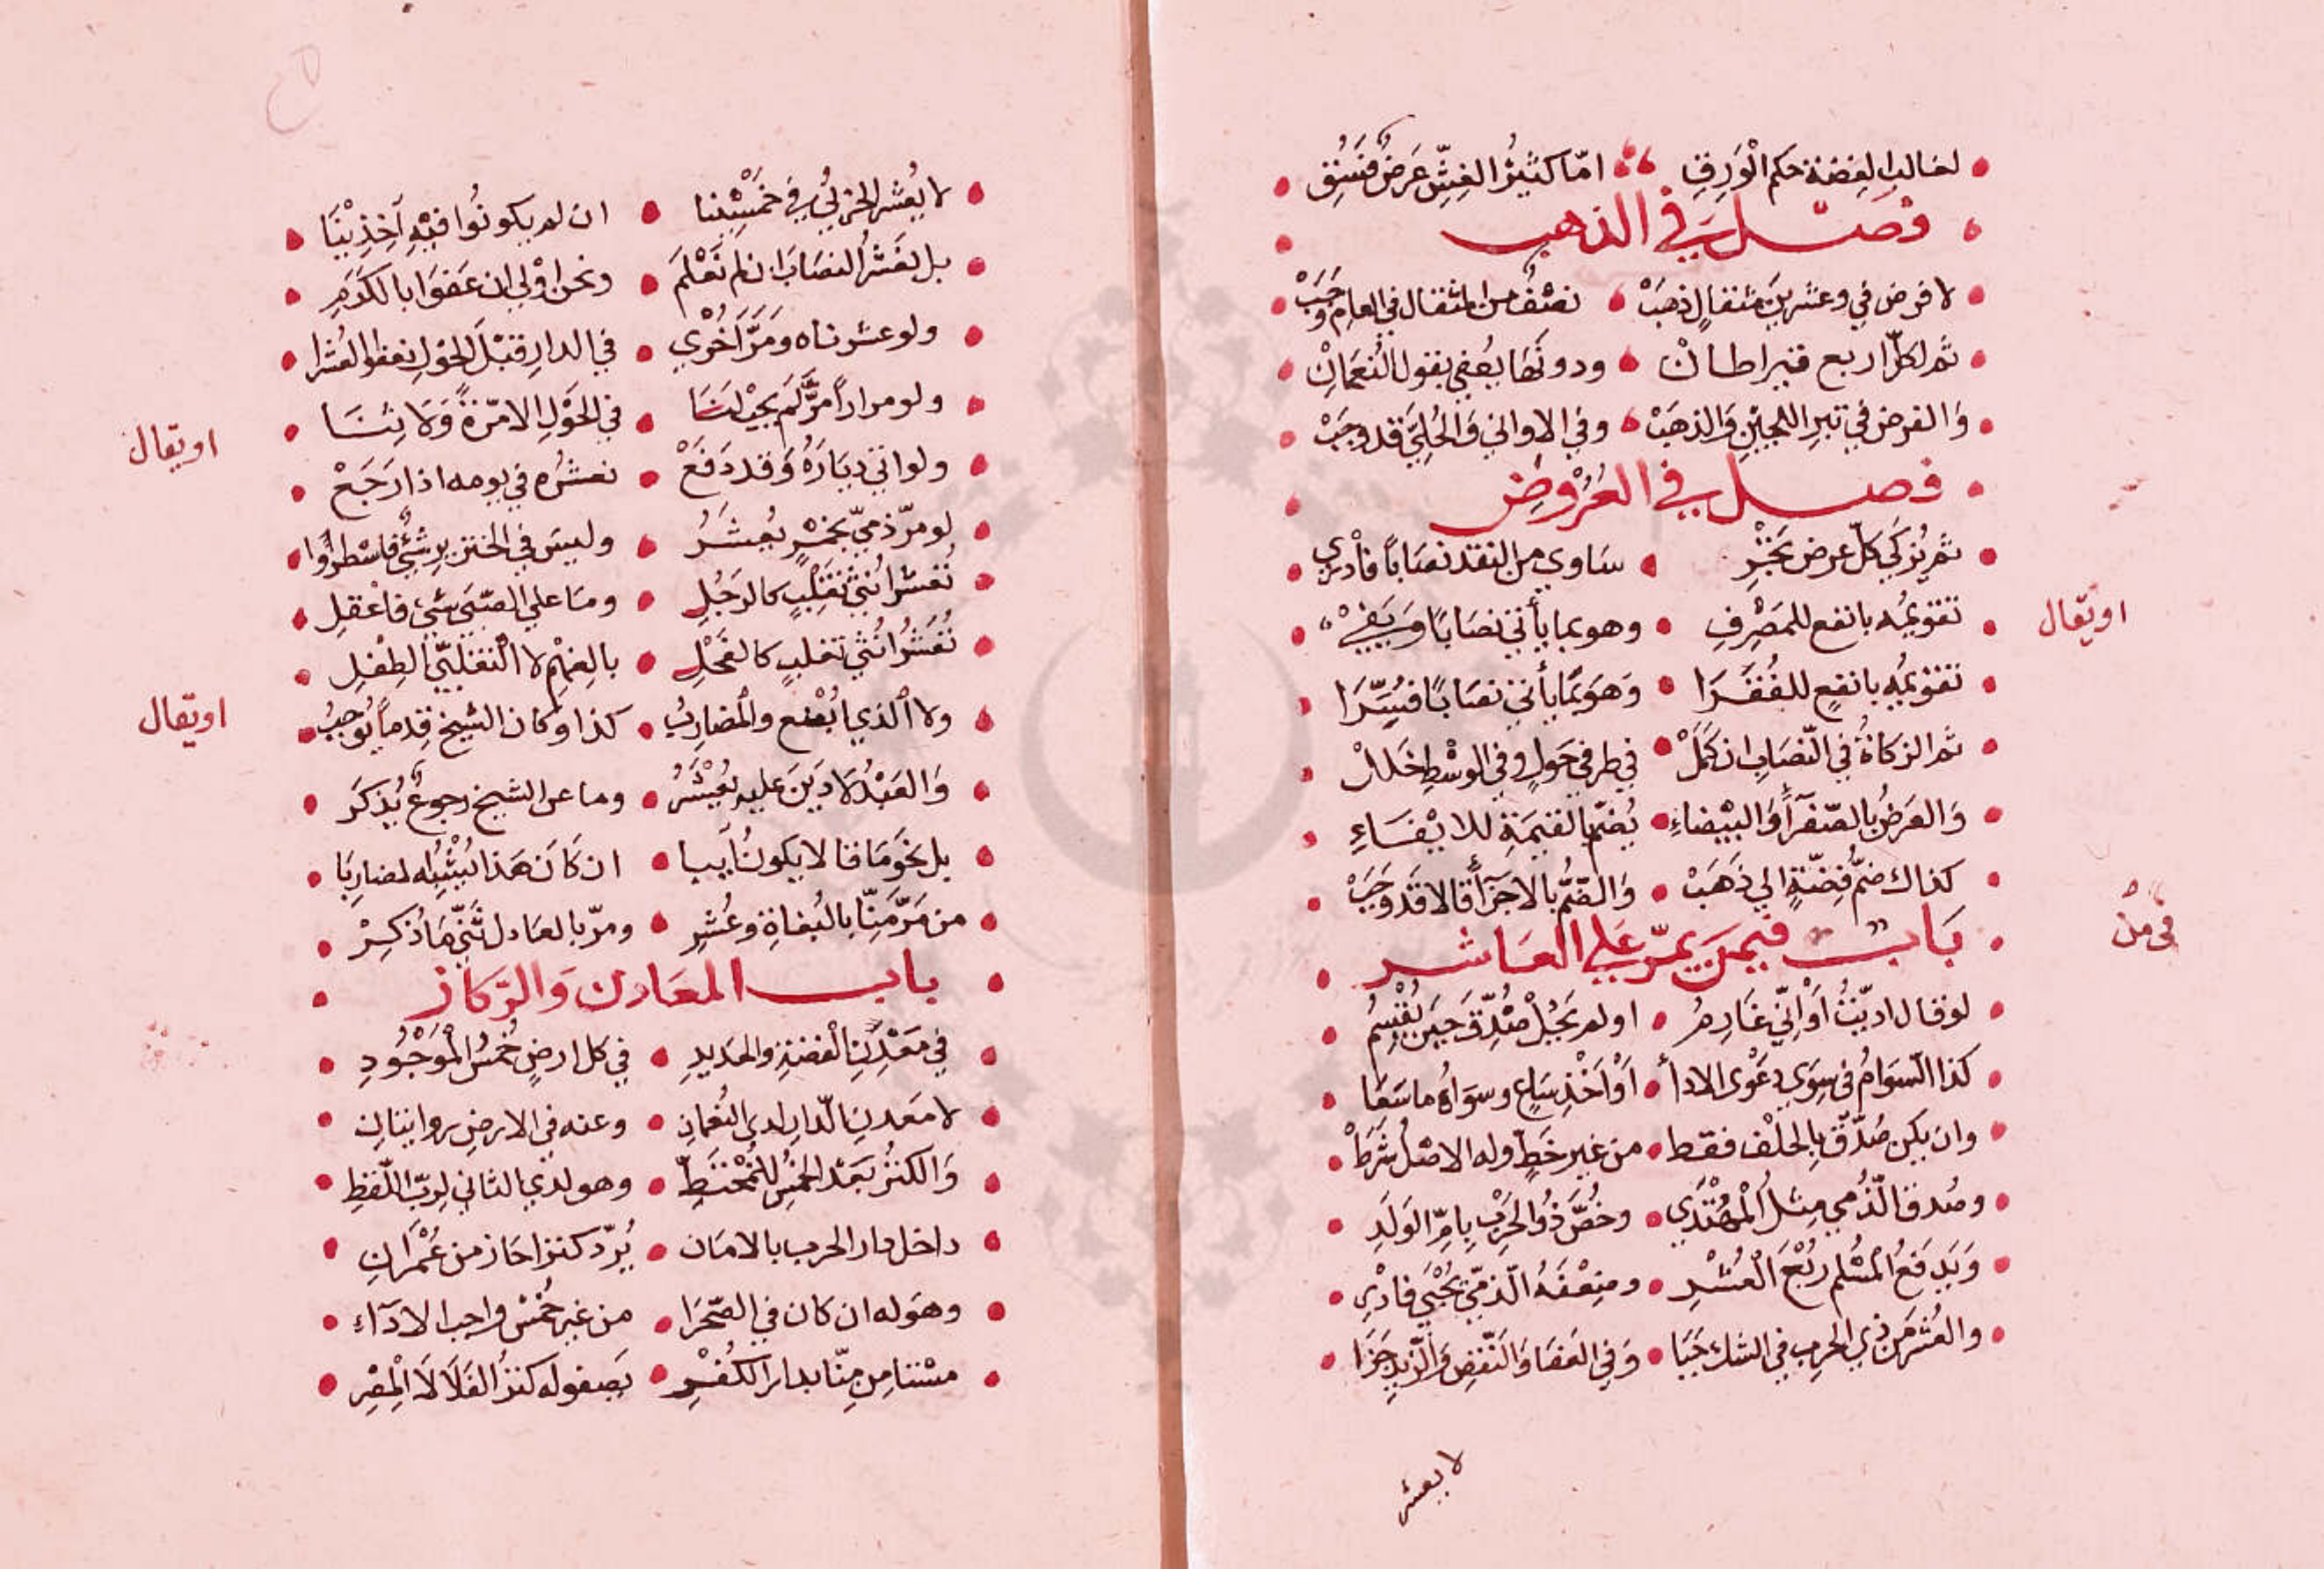 لغالب الفضة حكم الورق اما كثير الغش عرض فسق
فصل في الذهب
لا فرض في وعشرين مثقال ذهب نصف من المثقال في العام وجب
ثم لكل اربع قيراطان ودونها يعفي بقول النعمان
والفرض في تبر اللجين والذهب وفي الاواني والحلي قد وجب
فصل في العروض
ثم يزكي كل عرض تجر ساوي من النقد نصابا فادر
تقويمه بانفع للمصرف وهو بما يأتي نصابا وبقي
او يقال
تقويمه بانفع للفقرا وهو بما يأتي نصابا فسرا
ثم الزكاة في النصاب ان كمل في طرفي حول وفي الوسط خلل
والعرض بالصفرآ والبيضاء يضم بالقيمة للايفاء
كذاك ضم فضة الي ذهب والضم بالاجزآ قالا قد وجب
باب فيمن يمر علي العاشر
في من
لو قال اديت او اني غارم او لم يحل صدق حين يقسم
كذا السوام في سوي دعوى الادا او اخذ ساع وسواه ما سعا
وان يكن صدق بالحلف فقط من غير خط وله الاصل شرط
وصدق الذمي مثل المهتدي وخص ذو الحرب بام الولد
ويدفع المسلم ربع العشر وضعفه الذمي يجبي فادر
والعشر من ذي الحرب في الشك جبا وفي العفا والنقض والزيد جزا
لا يعشر
لا يعشر الحربي في خمسينا ان لم يكونوا فيه آخذينا
بل نعشر النصاب ان لم نعلم ونحن اولي ان عفوا بالكرم
ولو عشرناه ومر اخري في الدار قبل الحول نعفوا العشرا
ولو مرارا مر لم يجب لنا في الحول الا مرة ولا ثنا
او يقال
ولو اتي دياره وقد دفع نعشره في يومه اذا رجع
لو مر ذمي بخمر يعشر وليس في الخنزير شيء فاسطروا
نعشر انثي تغلب كالرجل وما علي الصبي شيء فاعقل
نعشر انثي تغلب كالفحل بالفهم لا التغلبي الطفل
او يقال
ولا الذي ابضع والمضارب كذا وكان الشيخ قدما يوجب
والعبد لا دين عليه يعشر وما عن الشيخ رجوع يذكر
بل نحو ما قالا يكون آيبا ان كان هذا يشبه لمضاربا
من مر منا بالبغاة وعشر ومر بالعادل ثني ما ذكر
باب المعادن والركاز
في معدن الفضة والحديد في كل ارض خمس الموجود
لا معدن الدار لدي النعمان وعنه في الارض روايتان
والكنز بعد الخمس للمختط وهو لدي الثاني لرب اللقط
داخل دار الحرب بالامان يرد كنزا حاز من عمران
وهو له ان كان في الصحرا من غير خمس واجب الادآء
مستامن منا بدار الكفر يصفو له كنز الفلا لا المصر